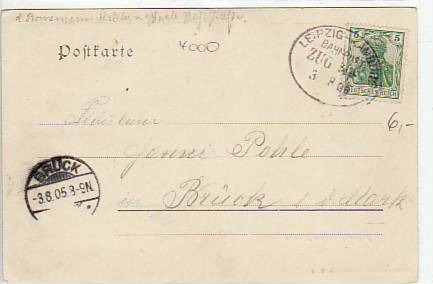 Postkarte
4000
LEIPZIG
BAHNPOST
ZUG
3 8 05
5 5
DEUTSCHES REICH
6,-
Fräulein
Jenni Pohle
in Brück i. d. Mark
BRÜCK
-3.8.05.8-9N.
*